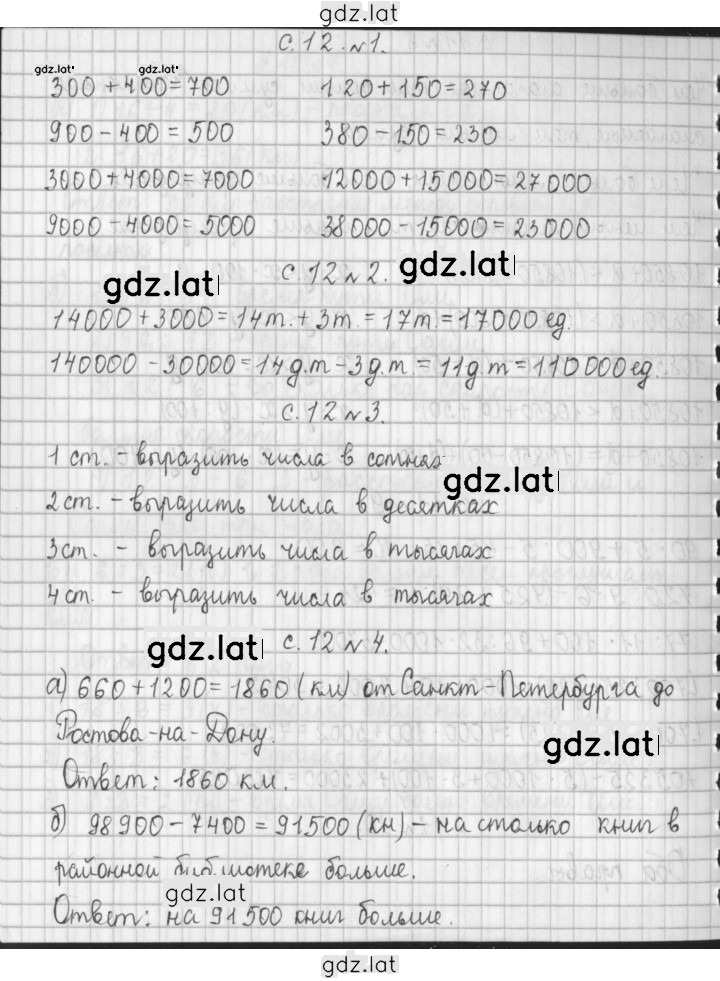 gdz.lat
с. 12 №1.
gdz.lat gdz.lat
300 + 400 = 700 120 + 150 = 270
900 - 400 = 500 380 - 150 = 230
3000 + 4000 = 7000 12000 + 15000 = 27000
9000 - 4000 = 5000 38000 - 15000 = 23000
с. 12 №2.
gdz.lat gdz.lat
14000 + 3000 = 14т. + 3т. = 17т. = 17000 ед.
140000 - 30000 = 14д.т - 3д.т. = 11д.т = 110000 ед.
с. 12 №3.
1 ст. - выразить числа в сотнях
gdz.lat
2 ст. - выразить числа в десятках
3 ст. - выразить числа в тысячах
4 ст. - выразить числа в тысячах
gdz.lat с. 12 №4.
а) 660 + 1200 = 1860 (км) от Санкт-Петербурга до
Ростова-на-Дону.
gdz.lat
Ответ: 1860 км.
б) 98900 - 7400 = 91500 (кн) - на столько книг в
районной библиотеке больше.
gdz.lat
Ответ: на 91500 книг больше.
gdz.lat